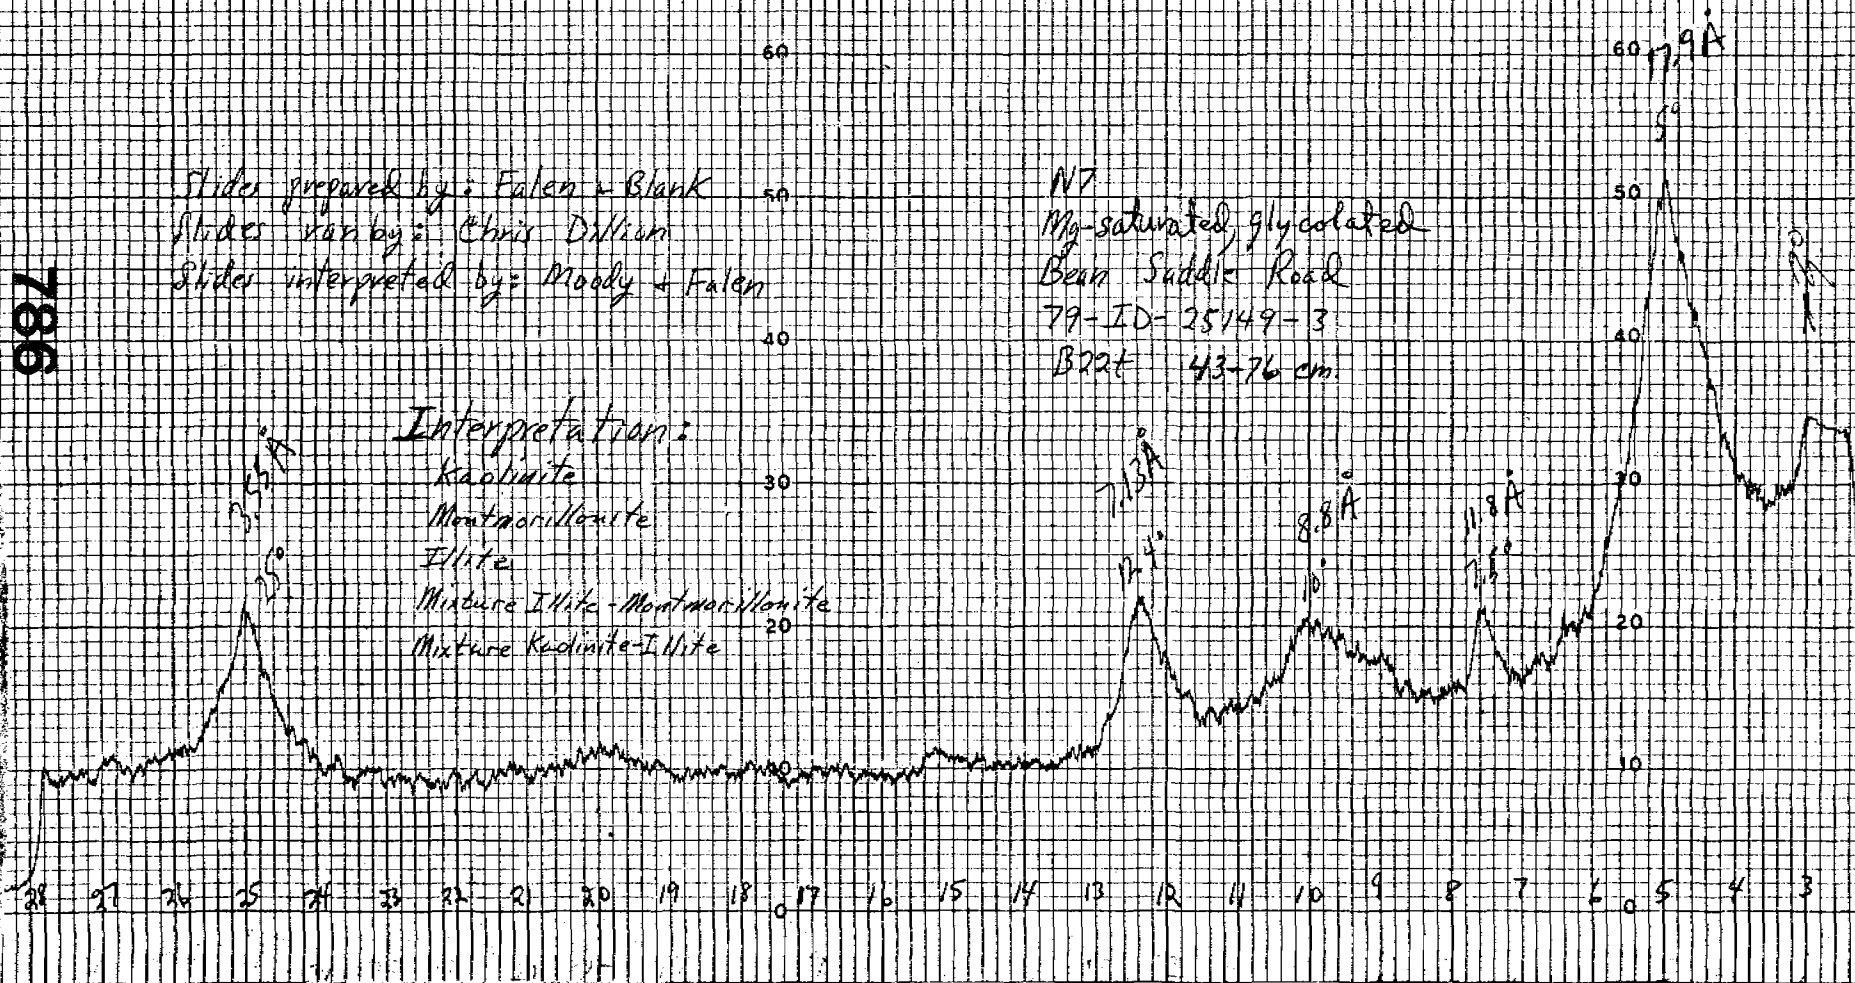 60
60
17.9 Å
5°
Slides prepared by: Falen & Blank
50
Slides ran by: Chris Dillion
Slides interpreted by: Moody & Falen
N7
50
Mg-saturated, glycolated
Bean Saddle Road
79-ID-25149-3
B22t 43-76 cm.
786
40
40
Interpretation:
Kaolinite
Montmorillonite
Illite
Mixture Illite-Montmorillonite
Mixture Kaolinite-Illite
30
30
20
20
10
10
3.55 Å
25°
7.13 Å
12.4°
8.8 Å
10°
11.8 Å
7.5°
28 27 26 25 24 23 22 21 20 19 18 17 16 15 14 13 12 11 10 9 8 7 6 5 4 3
0
0